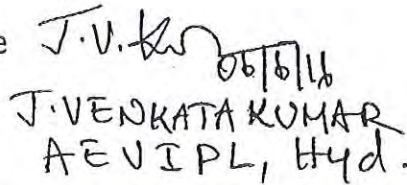 e J.V.Ku
06/6/16
J.VENKATA KUMAR
AEVIPL, Hyd.